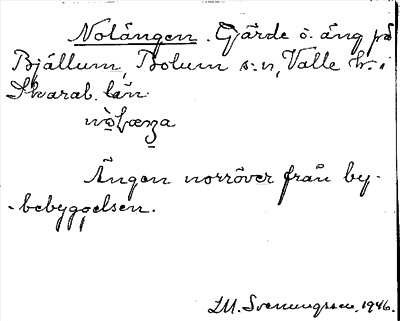 Nolängen. Gärde ö. äng på
Bjällum, Bolum s:n, Valle hr. i
Skarab. län.
Ängen norröver från by-
-bebyggelsen.
LM. Svenungsson, 1946.